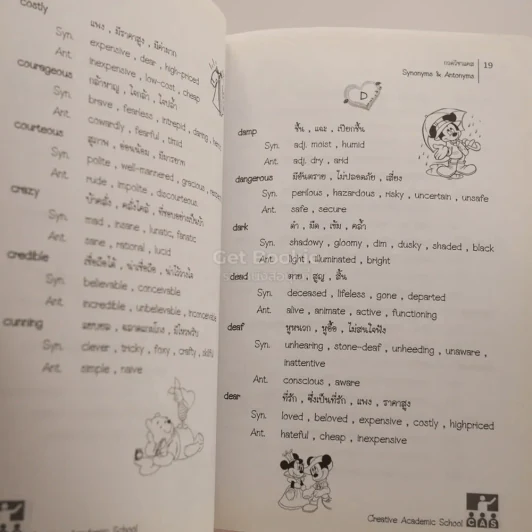 costly
แพง , มีราคาสูง , มีค่ามาก
Syn. expensive , dear , high-priced
Ant. inexpensive , low-cost , cheap
courageous
กล้าหาญ , ใจกล้า , ใจถึง
Syn. brave , fearless , intrepid , daring
Ant. cowardly , fearful , timid
courteous
สุภาพ , อ่อนน้อม , มีมารยาท
Syn. polite , well-mannered , gracious
Ant. rude , impolite , discourteous
crazy
Syn. mad , insane , lunatic, fanatic
Ant. sane , rational , lucid
credible
เชื่อถือได้ , น่าเชื่อถือ , น่าไว้วางใจ
Syn. believable , conceivable
Ant. incredible , unbelievable , inconceivable
cunning
Syn. clever , tricky , foxy , crafty , skillful
Ant. simple , naive
Creative Academic School
19
Synonyms & Antonyms
D
damp ชื้น , แฉะ , เปียกชื้น
Syn. adj. moist , humid
Ant. adj. dry , arid
dangerous มีอันตราย , ไม่ปลอดภัย , เสี่ยง
Syn. perilous , hazardous , risky , uncertain , unsafe
Ant. safe , secure
dark ดำ , มืด , เข้ม , คล้ำ
Syn. shadowy , gloomy , dim , dusky , shaded , black
Ant. light , illuminated , bright
dead ตาย , สูญ , สิ้น
Syn. deceased , lifeless , gone , departed
Ant. alive , animate , active , functioning
deaf หูหนวก , หูอื้อ , ไม่สนใจฟัง
Syn. unhearing , stone-deaf , unheeding , unaware ,
inattentive
Ant. conscious , aware
dear ที่รัก , ซึ่งเป็นที่รัก , แพง , ราคาสูง
Syn. loved , beloved , expensive , costly , highpriced
Ant. hateful , cheap , inexpensive
Creative Academic School
CAS